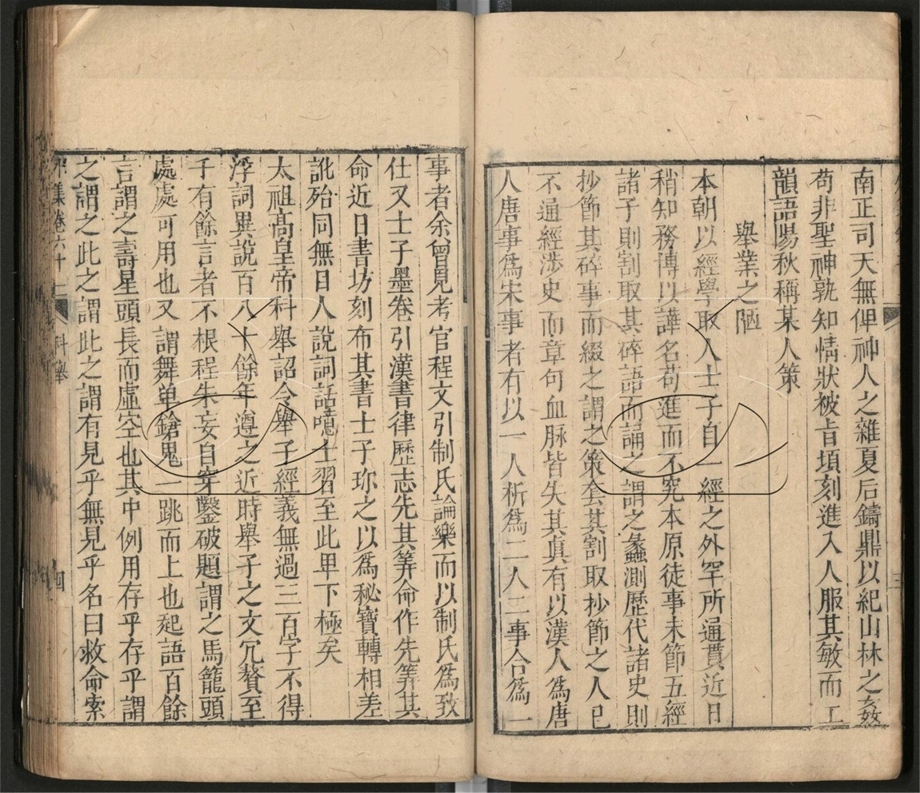 南正司天無俾神人之雜夏后鑄鼎以紀山林之姦
苟非聖神孰知情狀被旨頃刻進入人服其敏而工
韻語陽秋稱某人策
舉業之陋
本朝以經學取人士子自一經之外罕所通貫近日
稍知務博以譁名苟進而不究本原徒事末節五經
諸子則割取其碎語而誦之謂之蠡測歷代諸史則
抄節其碎事而綴之謂之策套其割取抄節之人已
不通經涉史而章句血脉皆失其真有以漢人爲唐
人唐事爲宋事者有以一人析爲二人二事合爲一
事者余曾見考官程文引制氏論樂而以制氏爲致
仕又士子墨卷引漢書律歷志先其筭命作先筭其
命近日書坊刻布其書士子珎之以爲秘寶轉相差
訛殆同無目人說詞話噫士習至此卑下極矣
太祖高皇帝科舉詔令舉子經義無過三百字不得
浮詞異說百八十餘年遵之近時舉子之文冗贅至
千有餘言者不根程朱妄自穿鑿破題謂之馬籠頭
處處可用也又謂舞单鎗鬼一跳而上也起語百餘
言謂之壽星頭長而虛空也其中例用存乎存乎謂
之謂之此之謂此之謂有見乎無見乎名曰救命索
集卷六十二
科舉
四